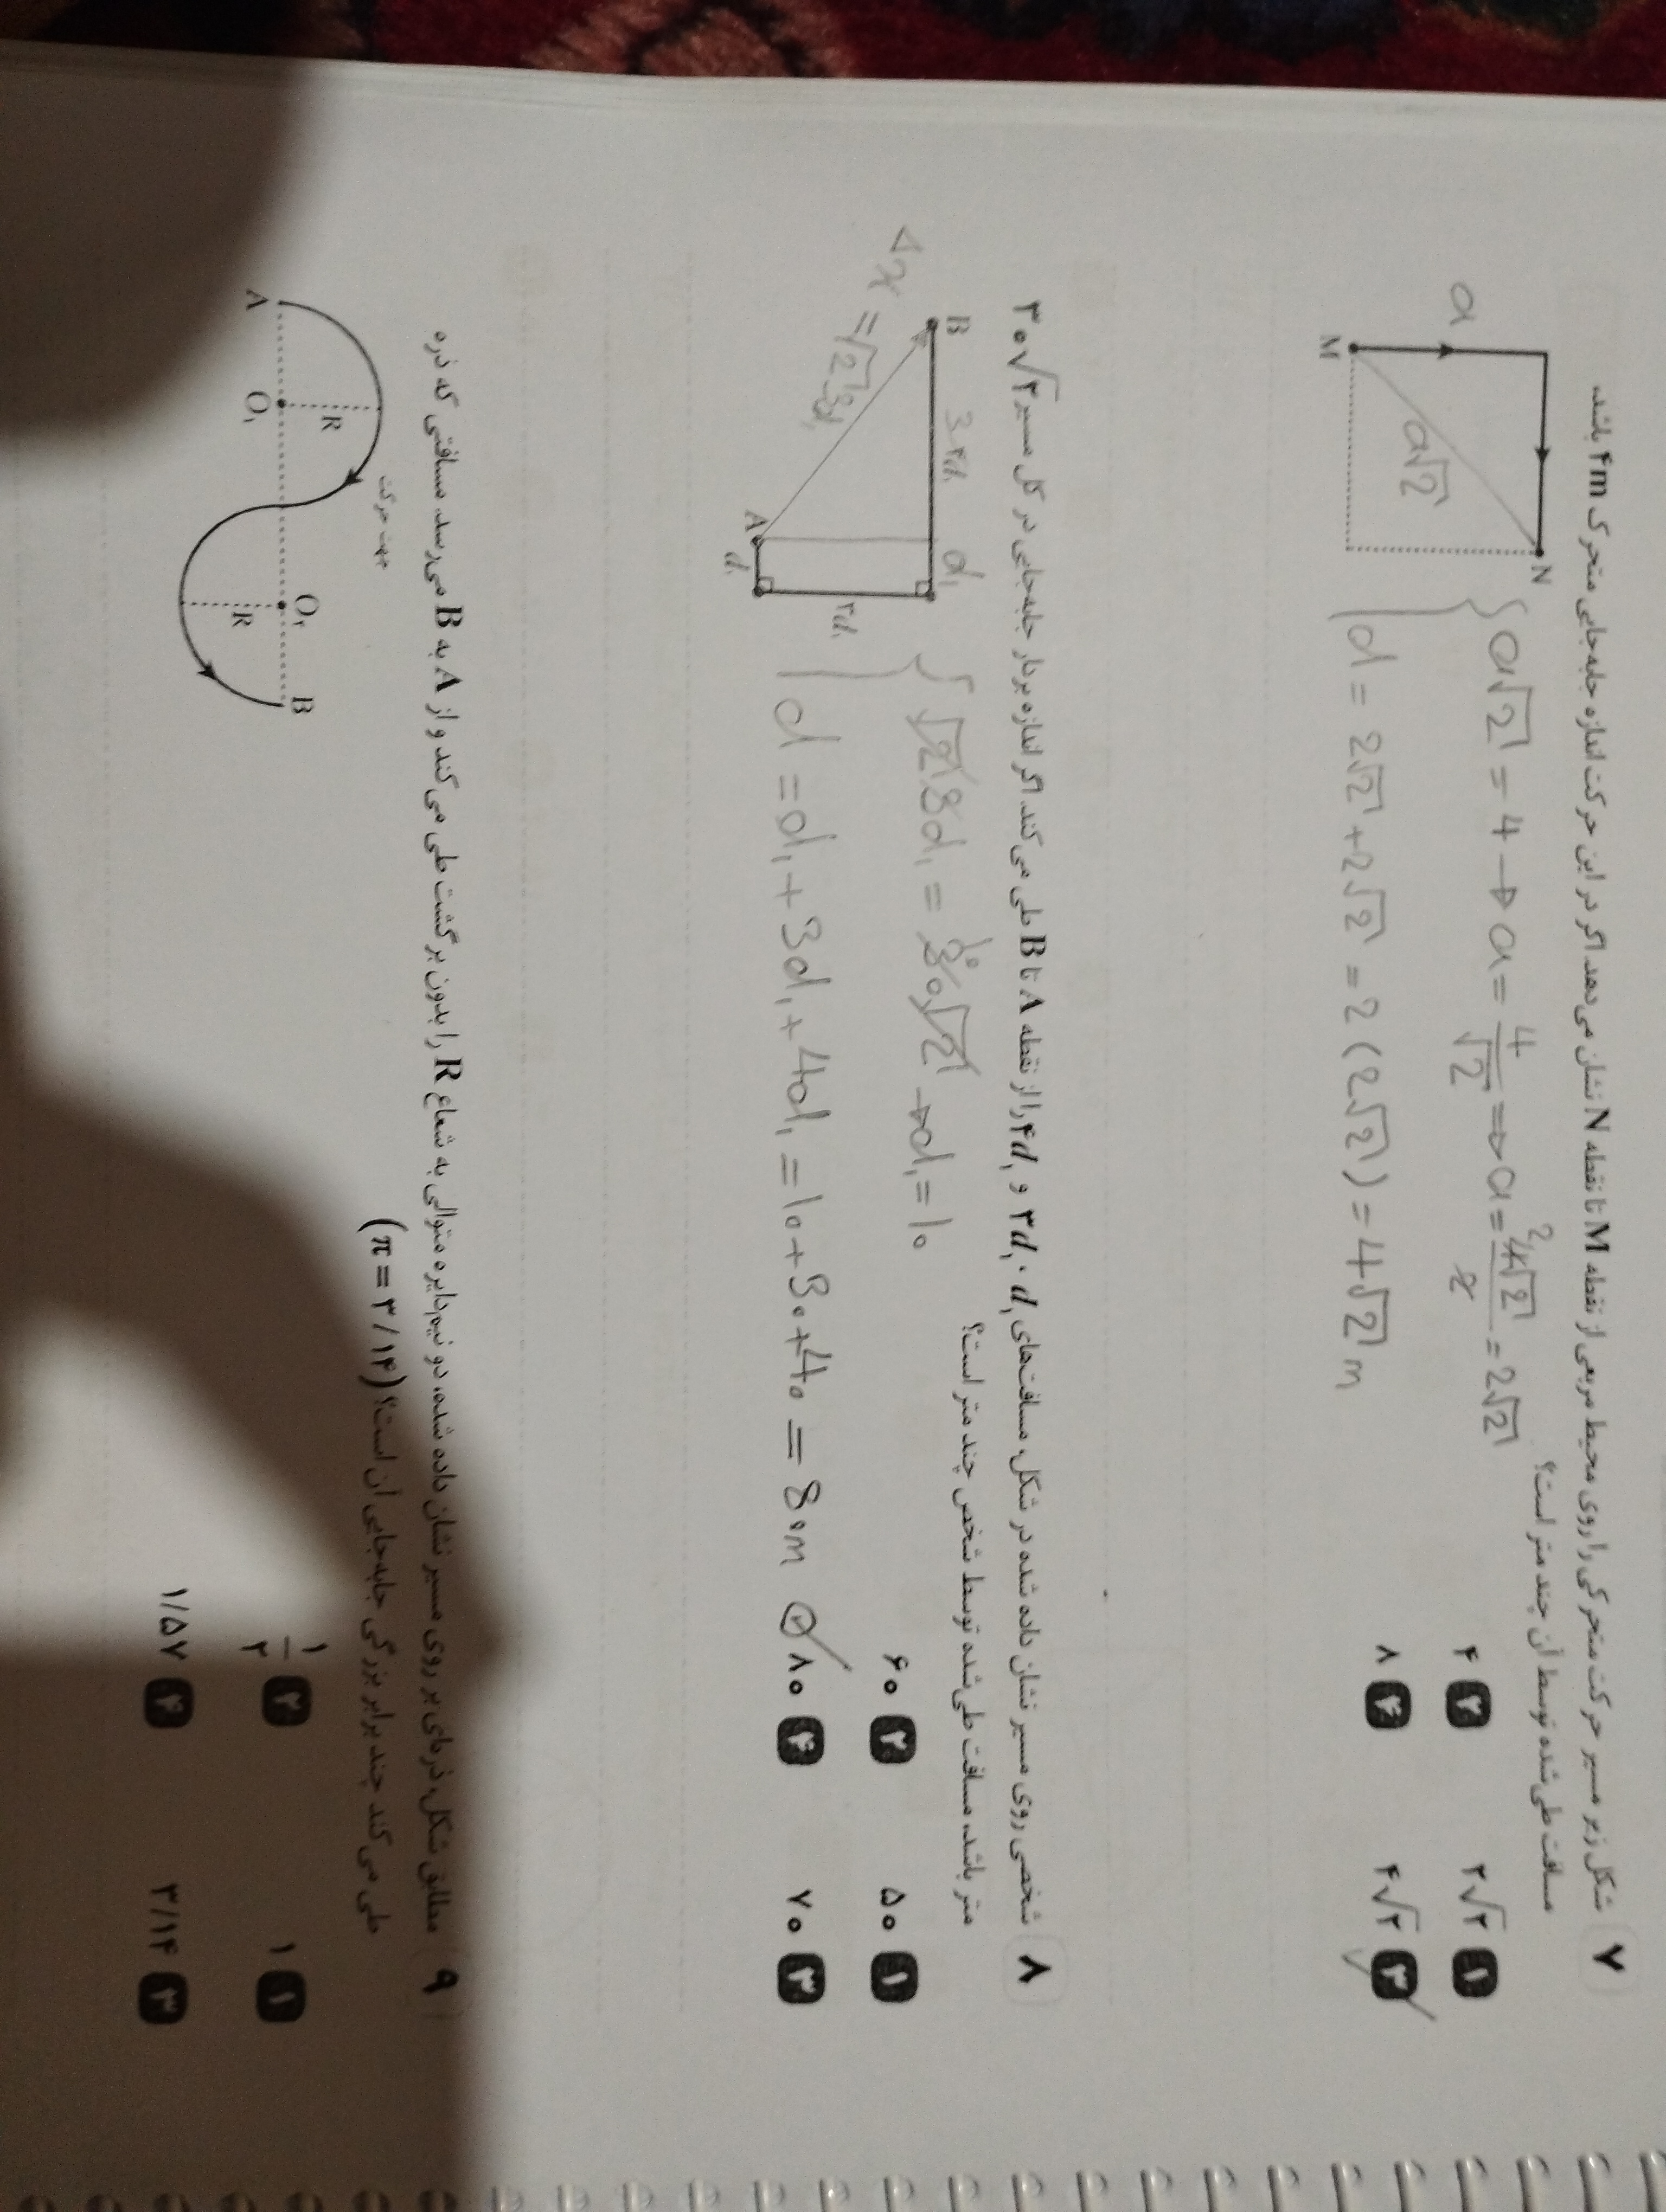 ۷ شکل زیر مسیر حرکت متحرکی را روی محیط مربعی از نقطه M تا نقطه N نشان می‌دهد. اگر در این حرکت اندازه جابه‌جایی متحرک ۴m باشد،
مسافت طی شده توسط آن چند متر است؟
۱ ۲√۲
۲ ۴
۳ ۴√۲
۴ ۸
a
M
N
a√2
a√2 = 4 → a = 4/√2 ⇒ a = 4√2/2 = 2√2
2
d = 2√2 + 2√2 = 2(2√2) = 4√2 m
۸ شخصی روی مسیر نشان داده شده در شکل، مسافت‌های d₁، ۳d₁ و ۴d₁ را از نقطه A تا B طی می‌کند. اگر اندازه بردار جابه‌جایی در کل مسیر ۳۰√۲
متر باشد، مسافت طی شده توسط شخص چند متر است؟
۱ ۵۰
۲ ۶۰
۳ ۷۰
۴ ۸۰
B
3
d₁
۳d₁
A
d₁
Δx = √2 3d₁
√2 3d₁ = 30√2 → d₁ = 10
10
d = d₁ + 3d₁ + 4d₁ = 10 + 30 + 40 = 80m
۹ مطابق شکل، ذره‌ای بر روی مسیر نشان داده شده، دو نیم‌دایره متوالی به شعاع R را بدون برگشت طی می‌کند و از A به B می‌رسد. مسافتی که ذره
طی می‌کند چند برابر بزرگی جابه‌جایی آن است؟ (π = ۳/۱۴)
۱ ۱
۲ ۱/۲
۳ ۳/۱۴
۴ ۱/۵۷
جهت حرکت
A
O₁
R
O₂
R
B